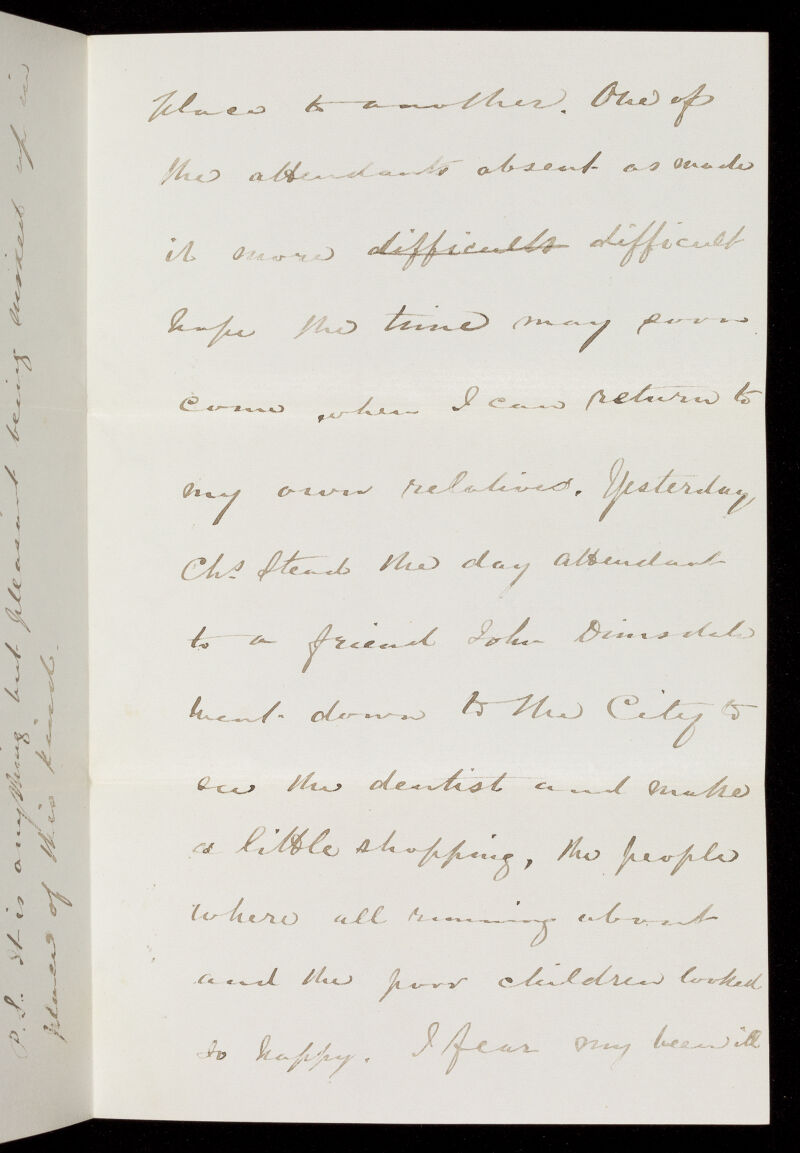 place to another. One of
the attendants absent as made
it more difficults difficult
hope the time may soon
come when I can return to
my own relatives. Yesterday
Chs Stead the day attendant
to a friend John Dimsdale
went down to the City to
see the dentist and make
a little shopping, the people
where all running about
and the poor children looked
so happy. I fear my been ill
P.S. It is anything but pleasant being mixed up in
places of this kind.